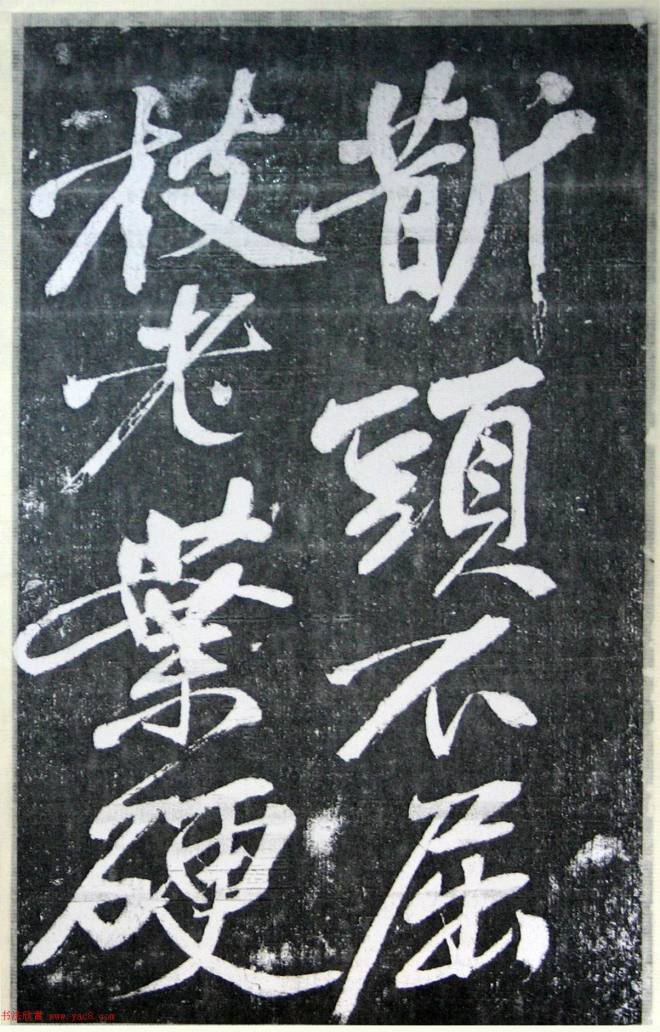 斮頭不屈
枝老葉硬
书法欣赏 www.yac8.com